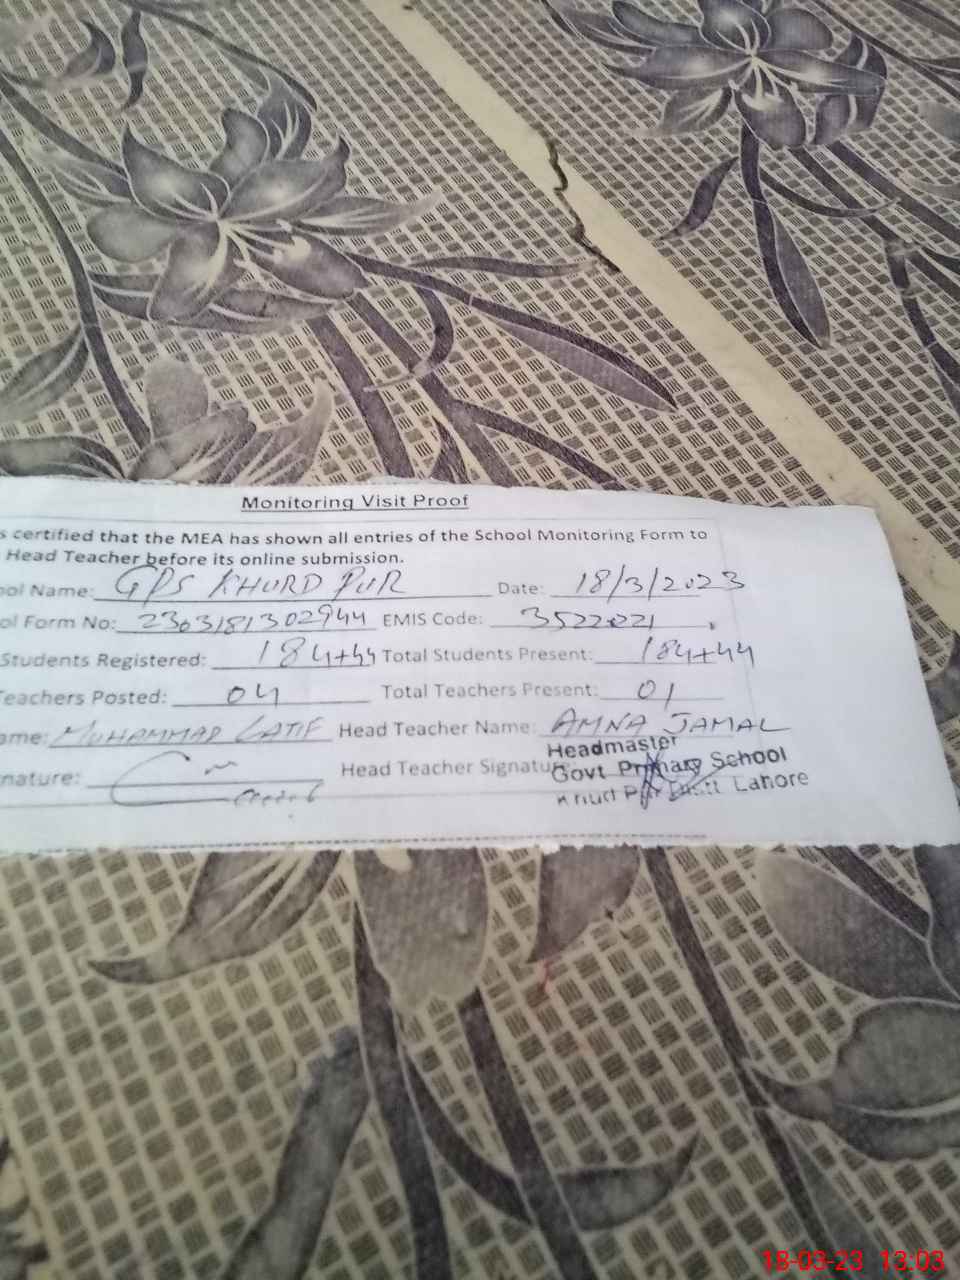 Monitoring Visit Proof
s certified that the MEA has shown all entries of the School Monitoring Form to
Head Teacher before its online submission.
ool Name: GPS KHURD PUR Date: 18/3/2023
ol Form No: 2303181302944 EMIS Code: 35222221
Students Registered: 184+44 Total Students Present: 184+44
Teachers Posted: 04 Total Teachers Present: 01
ame: MUHAMMAD LATIF Head Teacher Name: AMNA JAMAL
nature: Head Teacher Signature:
Headmaster
Govt Primary School
Khud Pur Distt Lahore
18-03-23 13:03